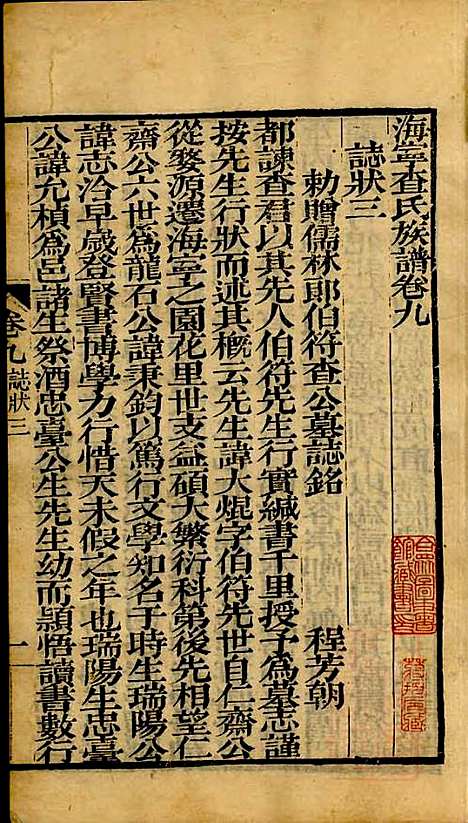 海寧查氏族譜卷九
誌狀三
勅贈儒林郎伯符查公墓誌銘　程芳朝
都諫查君以其先人伯符先生行實緘書千里授予為墓志謹
按先生行狀而述其概云先生諱大焜字伯符先世自仁齋公
從婺源遷海寧之園花里世支益碩大繁衍科第後先相望仁
齋公六世為龍石公諱秉鈞以篤行文學知名于時生瑞陽公
諱志洽早歲登賢書博學力行惜天未假之年也瑞陽生忠臺
公諱允楨為邑諸生祭酒忠臺公生先生幼而穎悟讀書數行
卷九　誌狀三　一